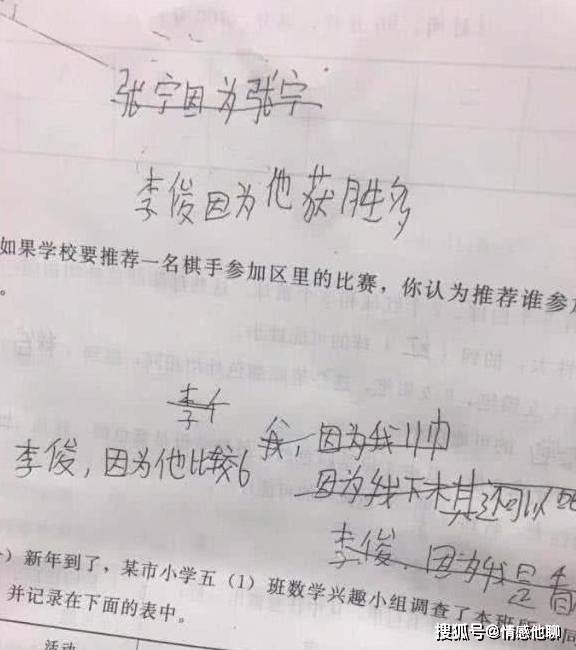 张宇因为张宇
李俊因为他获胜多
如果学校要推荐一名棋手参加区里的比赛,你认为推荐谁参加
。
李
我,因为我帅
李俊,因为他比较6
因为我下木其还可以
李俊,因为我是
)新年到了,某市小学五(1)班数学兴趣小组调查了本班同
并记录在下面的表中。
活动
搜狐号@情感他聊